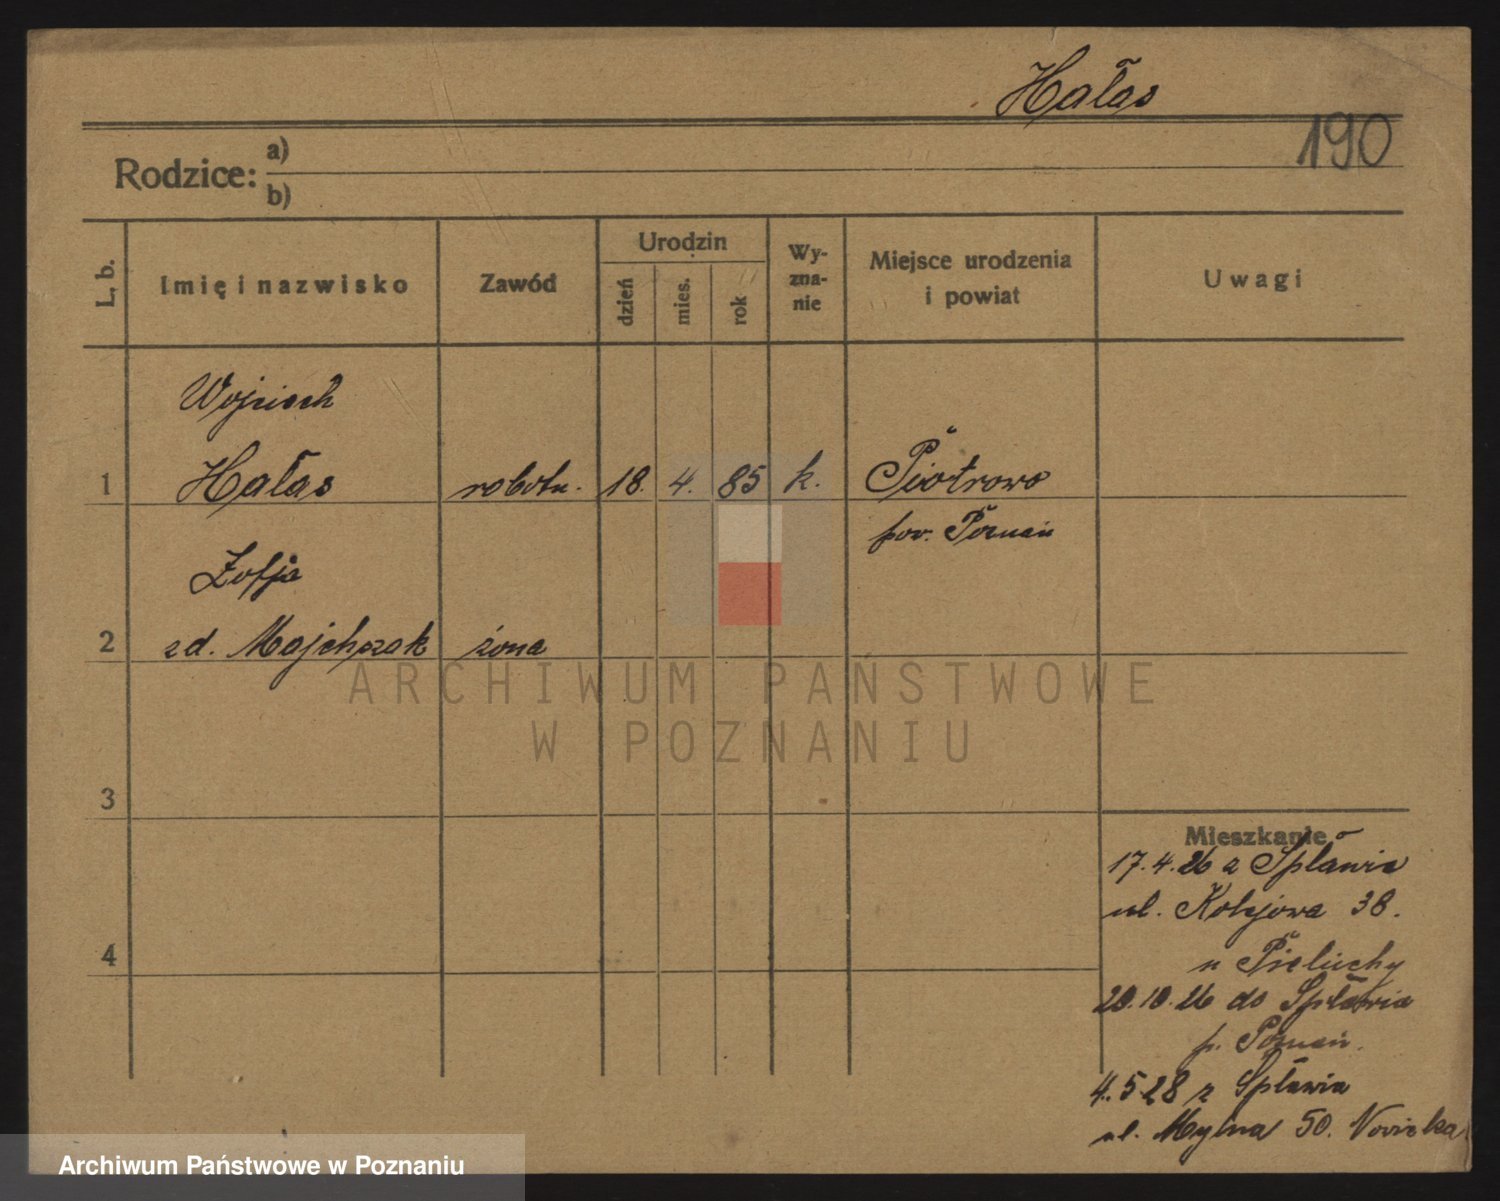 Hałas
190
Rodzice: a)
b)
L. b.
Imię i nazwisko
Zawód
Urodzin
dzień
mies.
rok
Wy-
zna-
nie
Miejsce urodzenia
i powiat
Uwagi
Wojciech
1 Hałas robotn. 18. 4. 85 k. Piotrowo
pow. Poznań
Zofja
2 zd. Majchrzak żona
3
4
Mieszkanie
17.4.26 z Spławia
ul. Kolejowa 38.
u Pieluchy
20.10.26 do Spławia
p. Poznań.
4.5.28 z Spławia
ul. Mylna 50.
ARCHIWUM PAŃSTWOWE
W POZNANIU
Archiwum Państwowe w Poznaniu